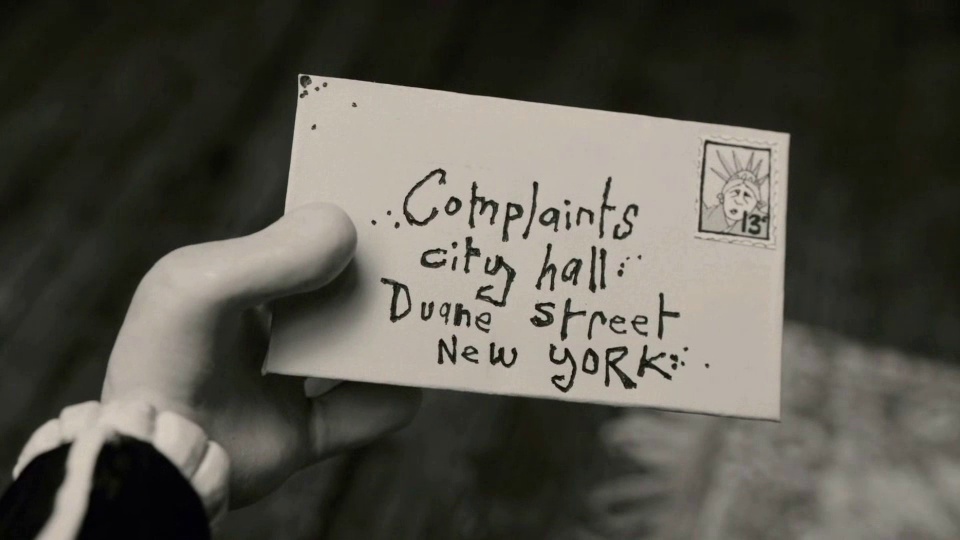 13c
Complaints
city hall
Duane street
New YORK